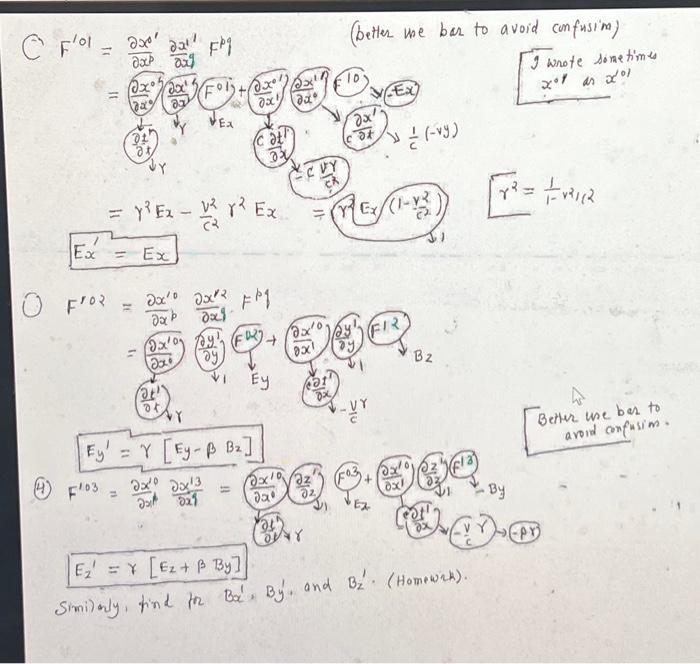 (better use bar to avoid confusion)
F'⁰¹ = ∂x⁰'/∂xᵖ ∂x¹'/∂x^q F^pq
I wrote sometimes x⁰' as x'⁰!
= (∂x⁰'/∂x⁰) (∂x¹'/∂x¹) (F⁰¹) + (∂x⁰'/∂x¹) (∂x¹'/∂x⁰) F¹⁰ → -Ex
∂t'/∂t → γ γ Ex c ∂t'/∂x → -c vγ/c² c ∂x'/∂t → 1/c (-vγ)
= γ² Ex - v²/c² γ² Ex = γ² Ex (1 - v²/c²) → 1
γ² = 1/1-v²/c²
Ex' = Ex
F'⁰² = ∂x'⁰/∂xᵖ ∂x'²/∂x^q F^pq
= (∂x'⁰/∂x⁰) (∂y'/∂y) (F⁰²) + (∂x'⁰/∂x¹) (∂y'/∂y) (F¹²) → Bz
∂t'/∂t → γ 1 Ey c∂t'/∂x → -v/c γ 1
Better use bar to avoid confusion.
Ey' = γ [Ey - β Bz]
(4) F'⁰³ = ∂x'⁰/∂xᵖ ∂x'³/∂x^q = (∂x'⁰/∂x⁰) (∂z'/∂z) (F⁰³) + (∂x'⁰/∂x¹) (∂z'/∂z) (F¹³) → -By
∂t'/∂t → γ 1 Ez c∂t'/∂x → -v/c γ → -βγ 1
Ez' = γ [Ez + β By]
Similarly, find for Bx', By', and Bz'. (Homework).